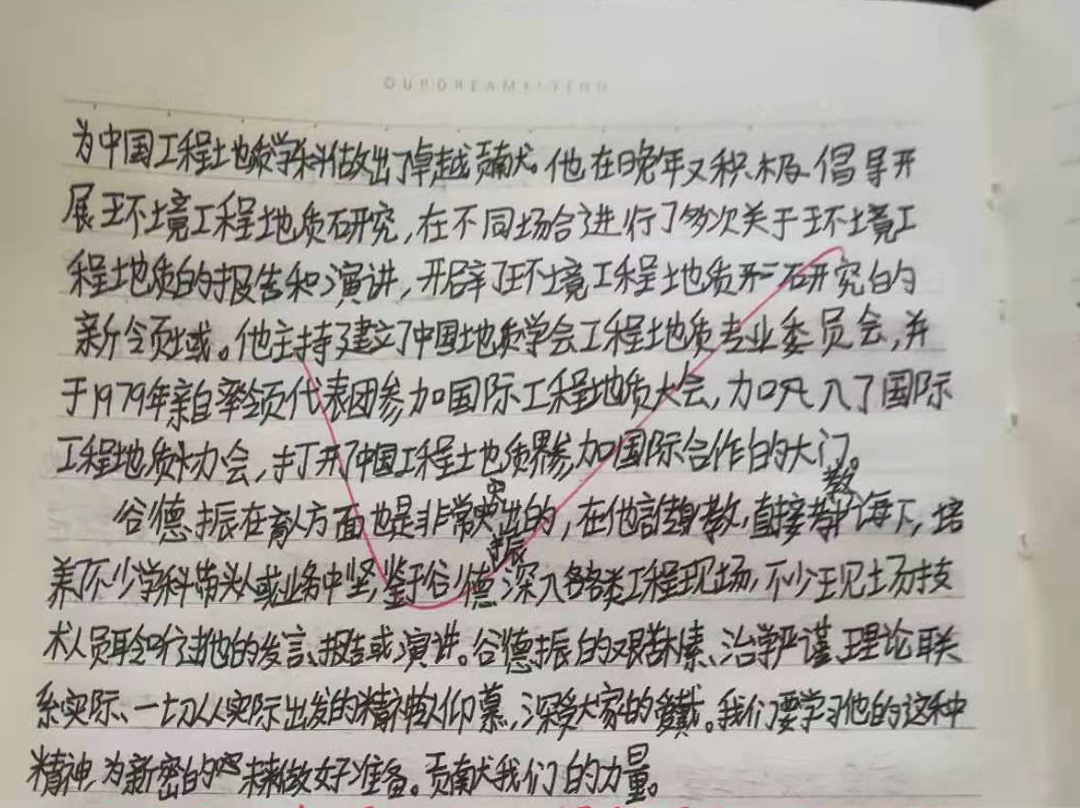 OURDREAMFITEND
为中国工程土地质学科做出了卓越贡献。他在晚年又积极倡导开
展环境工程地质研究,在不同场合进行了多次关于环境工
程地质的报告和演讲,开辟了环境工程地质研究的
新领域。他主持了建立了中国地质学会工程地质专业委员会,并
于1979年亲自率领代表团参加国际工程地质大会,加入了国际
工程地质协会,打开了中国工程土地质界参加国际合作的大门。
谷德振在育人方面也是非常突出的,在他言传身教,直接教诲下,培
养了不少学科带头人或业务中坚,鉴于谷德振深入各类工程现场,不少现场技
术人员聆听过他的发言、报告或演讲。谷德振的艰苦朴素、治学严谨、理论联
系实际、一切从实际出发的精神令人仰慕,深受大家的爱戴。我们要学习他的这种
精神,为新密的未来做好准备。贡献我们的力量。